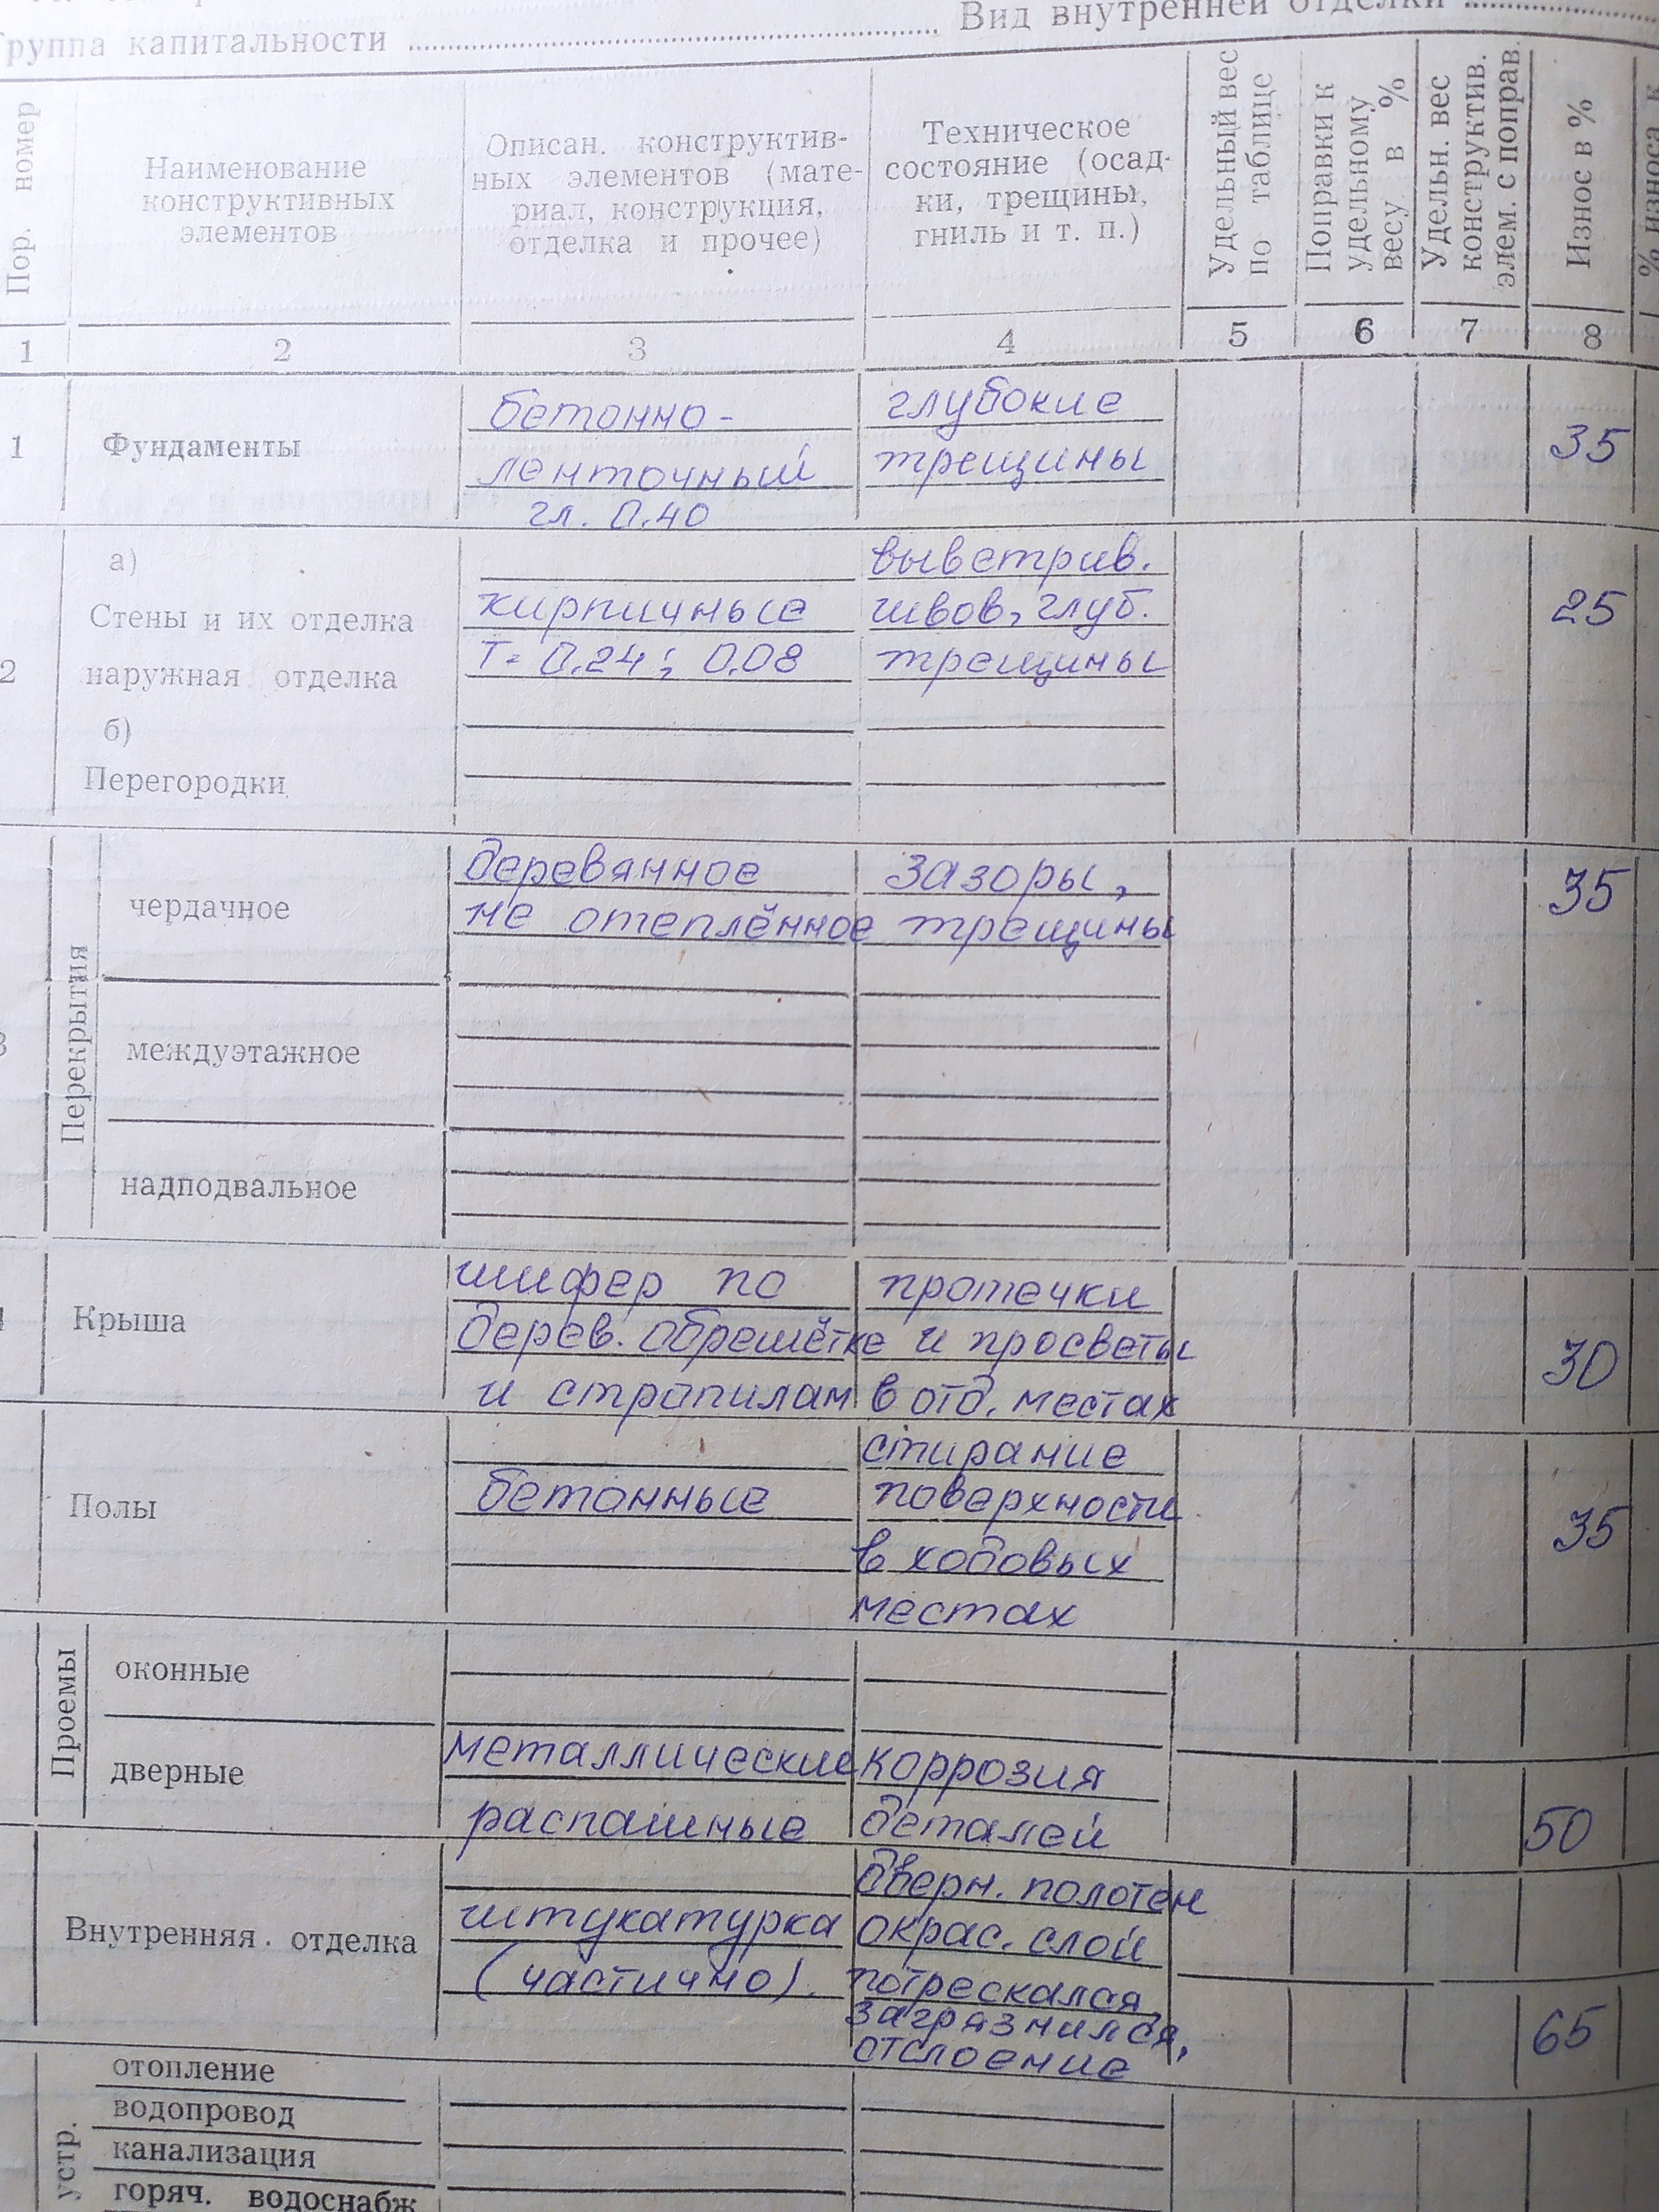 Группа капитальности Вид внутренней отделки
Пор. номер
Наименование конструктивных элементов
Описан. конструктив-
ных элементов (мате-
риал, конструкция,
отделка и прочее)
Техническое
состояние (осад-
ки, трещины,
гниль и т. п.)
Удельный вес
по таблице
Поправки к
удельному
весу в %
Удельн. вес
конструктив.
элем. с поправ.
Износ в %
% износа к
1 2 3 4 5 6 7 8
1 Фундаменты
бетонно-
ленточный
гл. 0.40
глубокие
трещины
35
2
а)
Стены и их отделка
наружная отделка
б)
Перегородки
кирпичные
Т= 0.24; 0.08
выветрив.
швов, глуб.
трещины
25
3
Перекрытия
чердачное
деревянное
не отеплённое
зазоры,
трещины
35
междуэтажное
надподвальное
Крыша
шифер по
дерев. обрешётке
и стропилам
протечки
и просветы
в отд. местах
30
Полы
бетонные
стирание
поверхности
в ходовых
местах
35
Проемы
оконные
дверные
металлические
распашные
коррозия
деталей
дверн. полотен
50
Внутренняя отделка
штукатурка
(частично).
окрас. слой
потрескался,
загрязнился,
отслоение
65
устр.
отопление
водопровод
канализация
горяч. водоснабж